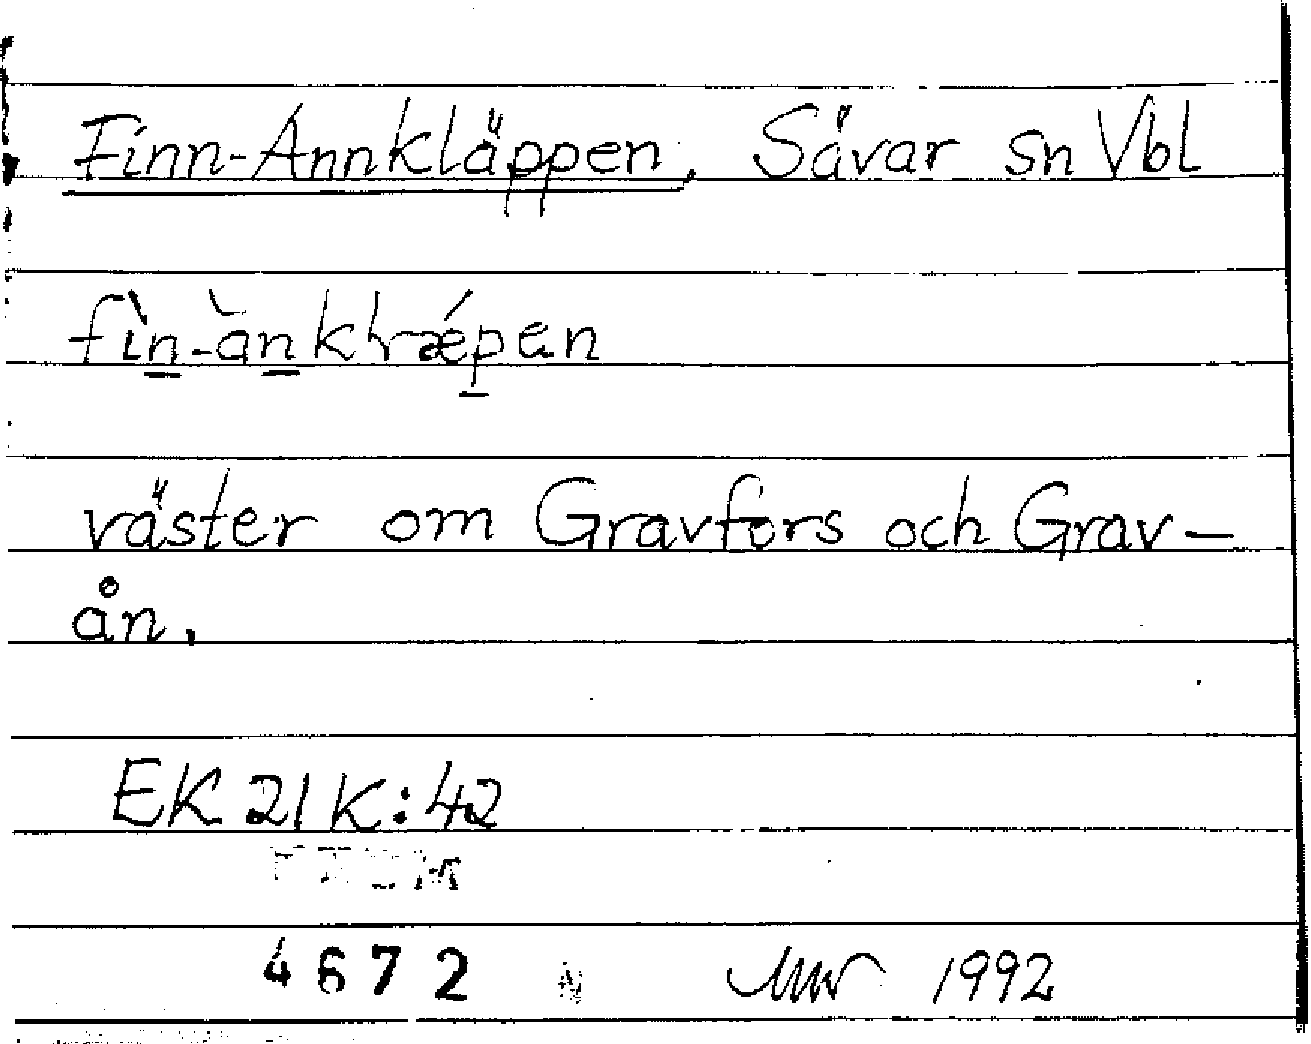 Finn-Annkläppen, Sävar sn Vbl
fìn-ànkɽǽpen
väster om Gravfors och Grav-
ån.
EK 21 K:42
4672
1992